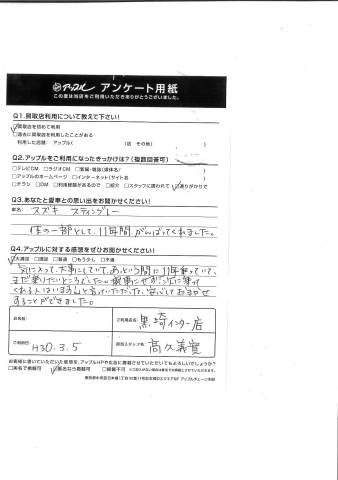 アップル アンケート用紙
この度は当店をご利用いただきありがとうございました。
Q1.買取店利用について教えて下さい!
☑買取店を初めて利用
□過去に買取店を利用したことがある
利用した店舗: アップル( )店 その他( )
Q2.アップルをご利用になったきっかけは?(複数回答可)
□テレビCM □ラジオCM □新聞・雑誌(媒体名/ )
□アップルのホームページ □インターネット(サイト名 )
□チラシ □DM □利用経験があるので □紹介 □スタッフに誘われて ☑通りがかりで
Q3.あなたと愛車との思い出をお聞かせください!
車名: スズキ スティングレー
体の一部として、11年間がんばってくれました。
Q4.アップルに対する感想をぜひお聞かせください!
☑大満足 □満足 □普通 □もう少し □不満
気に入って、大事にしていて、あっという間に11年乗っていて、
まだ乗りたいところでした。
くれる人はいますよと言っていただいた、安心しておまかせ
することができました。
お名前:
ご利用店名: 黒埼インター店
ご利用日: H30.3.5
担当スタッフ名: 高久義實
お客様に書いていただいた感想を、アップルHPや広告に掲載させていただいてもよろしいでしょうか?
□実名で掲載可 ☑匿名なら掲載可 □掲載不可